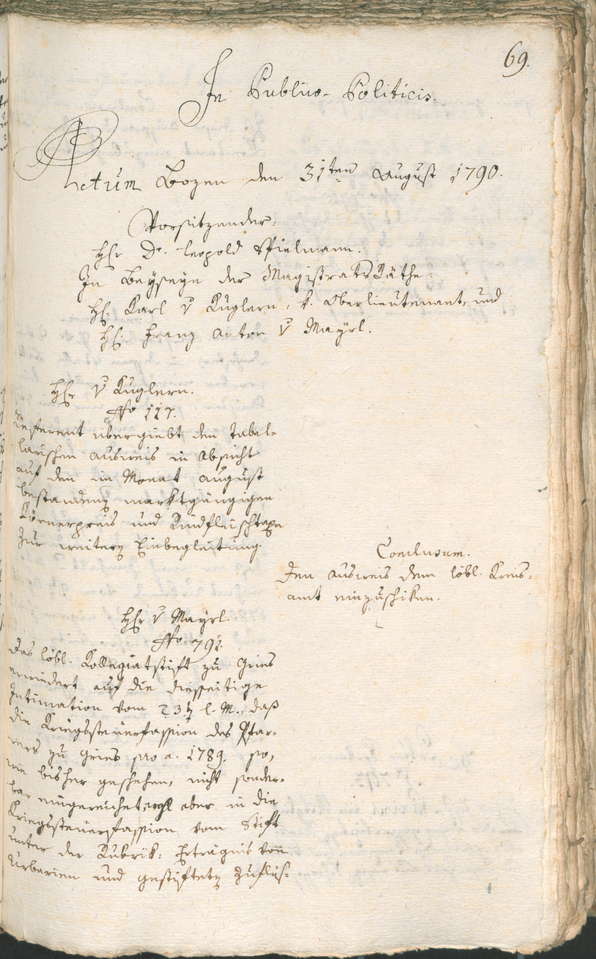 69.
In Publico-Politicis.
Actum Bozen den 31ten August 1790.
Vorsitzender:
Hr Dr. Leopold Spielmann.
In Beyseyn der Magistrats Räthe:
Hr. Karl v Kuglern, k. Oberlieutenant, und
Hr. Franz Anton v Mayrl.
Hr v Kuglern.
No 117.
Referent übergiebt den Tabel-
larischen Ausweis in Absicht
auf den im Monat August
bestandenen marktgängigen
Körnerpreis und Rindfleischtaxe
zur weitern Einbegleitung.
Conclusum.
Den Ausweis dem löbl. Kreis-
amt einzuschiken.
Hr v Mayrl.
No 792.
Das löbl. Kollegiatstift zu Gries
erwiedert auf die diesseitige
Intimation vom 23t l. M., daß
die Kriegssteuerfassion des Pfar-
rers zu Gries pro a. 1789. so,
wie bisher geschehen, nicht sonder-
bar eingereichet, wohl aber in die
Kriegssteuerfassion vom Stift
unter der Rubrik: Erträgnis von
Urbarien und gestifteten Zuflüs-